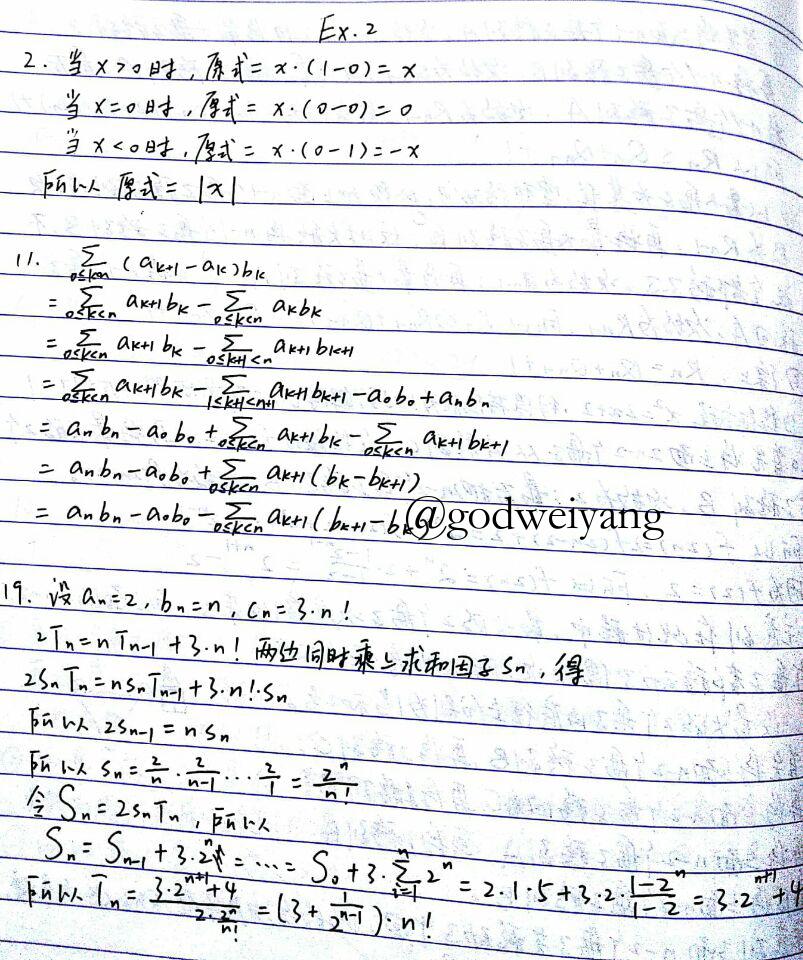 Ex.2
2. 当 x>0时, 原式= x·(1-0)= x
当 x=0时, 原式= x·(0-0)=0
当 x<0时, 原式= x·(0-1)=-x
所以 原式= |x|
11. ∑_{0≤k<n} (a_{k+1}-a_k)b_k
= ∑_{0≤k<n} a_{k+1}b_k - ∑_{0≤k<n} a_kb_k
= ∑_{0≤k<n} a_{k+1}b_k - ∑_{0≤k+1<n} a_{k+1}b_{k+1}
= ∑_{0≤k<n} a_{k+1}b_k - ∑_{1≤k+1<n+1} a_{k+1}b_{k+1} - a_0b_0 + a_nb_n
= a_nb_n - a_0b_0 + ∑_{0≤k<n} a_{k+1}b_k - ∑_{0≤k<n} a_{k+1}b_{k+1}
= a_nb_n - a_0b_0 + ∑_{0≤k<n} a_{k+1}(b_k - b_{k+1})
= a_nb_n - a_0b_0 - ∑_{0≤k<n} a_{k+1}(b_{k+1} - b_k)
@godweiyang
19. 设 a_n=2, b_n=n, c_n=3·n!
2T_n=nT_{n-1}+3·n! 两边同时乘上求和因子 s_n, 得
2s_nT_n=ns_nT_{n-1}+3·n!·s_n
所以 2s_{n-1}=ns_n
所以 s_n=\frac{2}{n}·\frac{2}{n-1}···\frac{2}{1}=\frac{2^n}{n!}
令 S_n=2s_nT_n, 所以
S_n=S_{n-1}+3·2^n=···=S_0+3·∑_{i=1}^{n}2^n=2·1·5+3·2·\frac{1-2^n}{1-2}=3·2^{n+1}+4
所以 T_n=\frac{3·2^{n+1}+4}{2·\frac{2^n}{n!}}=(3+\frac{1}{2^{n-1}})·n!